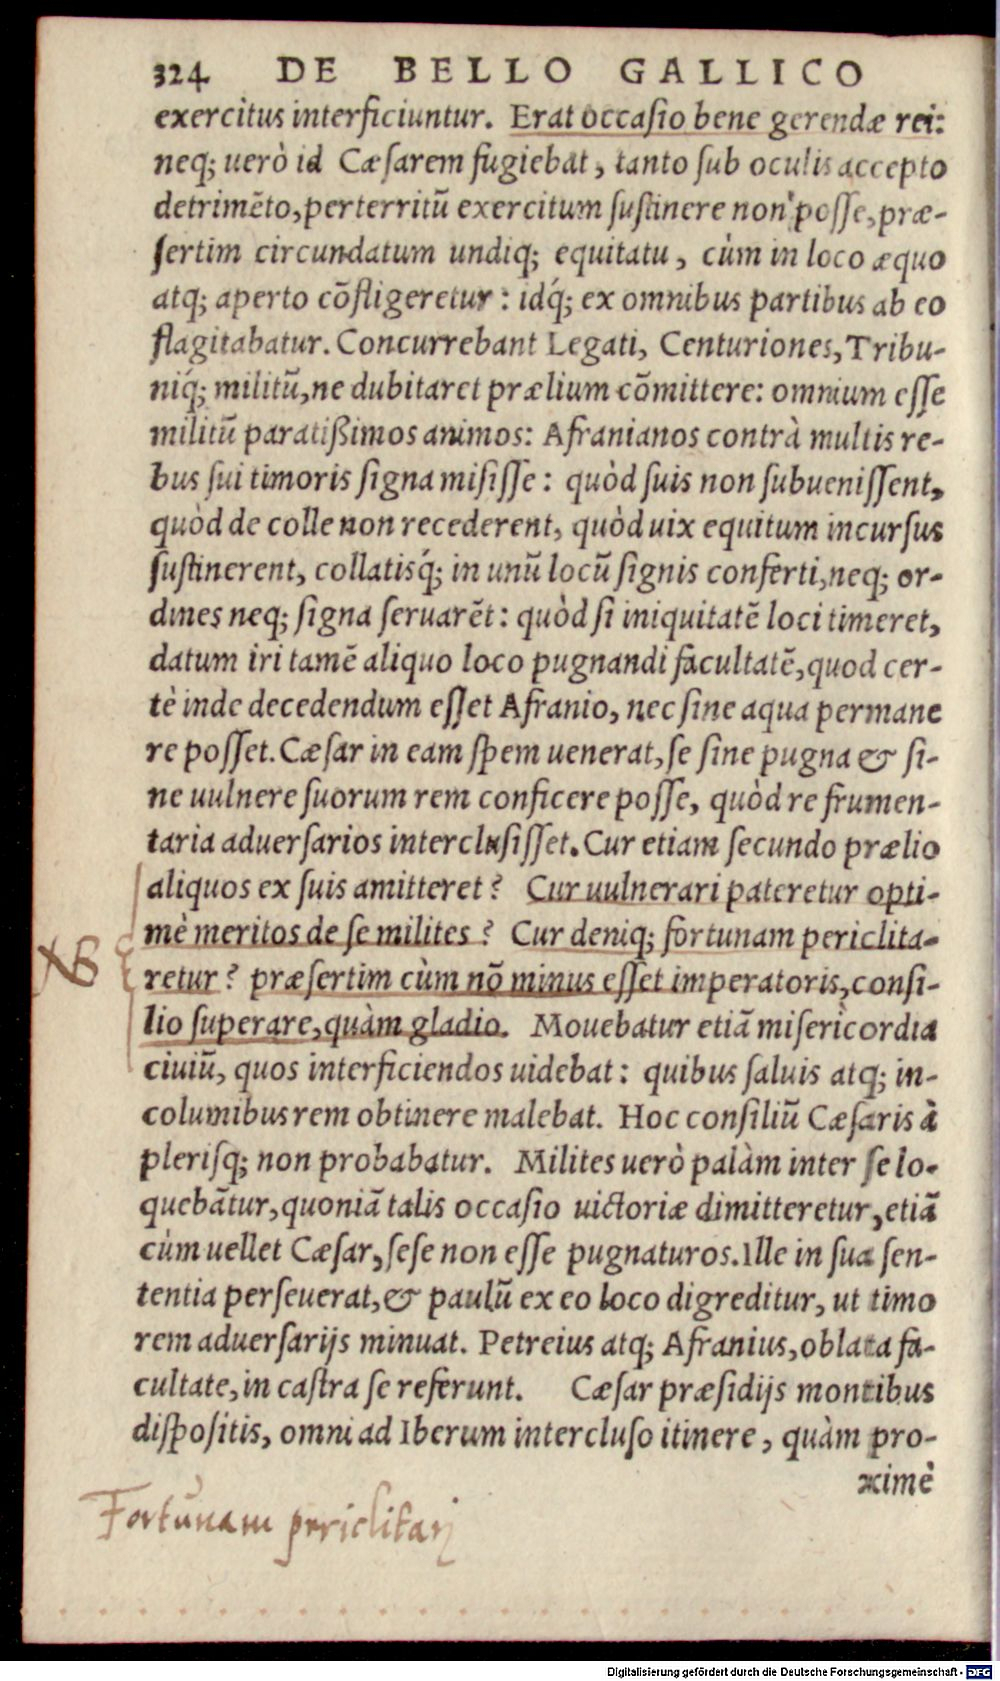 324 DE BELLO GALLICO
exercitus interficiuntur. Erat occaſio bene gerendæ rei:
neq; uerò id Cæſarem fugiebat, tanto ſub oculis accepto
detrimẽto, perterritũ exercitum ſuſtinere non poſſe, præ-
ſertim circundatum undiq; equitatu, cùm in loco æquo
atq; aperto cõfligeretur: idq́; ex omnibus partibus ab eo
flagitabatur. Concurrebant Legati, Centuriones, Tribu-
niq́; militũ, ne dubitaret prælium cõmittere: omnium eſſe
militũ paratißimos animos: Afranianos contrà multis re-
bus ſui timoris ſigna miſiſſe: quòd ſuis non ſubueniſſent,
quòd de colle non recederent, quòd uix equitum incurſus
ſuſtinerent, collatisq́; in unũ locũ ſignis conferti, neq; or-
dines neq; ſigna ſeruarẽt: quòd ſi iniquitatẽ loci timeret,
datum iri tamẽ aliquo loco pugnandi facultatẽ, quod cer-
tè inde decedendum eſſet Afranio, nec ſine aqua permane
re poſſet. Cæſar in eam ſpem uenerat, ſe ſine pugna & ſi-
ne uulnere ſuorum rem conficere poſſe, quòd re frumen-
taria aduerſarios intercluſiſſet. Cur etiam ſecundo prælio
aliquos ex ſuis amitteret? Cur uulnerari pateretur opti-
mè meritos de ſe milites? Cur deniq; fortunam periclita-
NB retur? præſertim cùm nõ minus eſſet imperatoris, conſi-
lio ſuperare, quàm gladio. Mouebatur etiã miſericordia
ciuiũ, quos interficiendos uidebat: quibus ſaluis atq; in-
columibus rem obtinere malebat. Hoc conſiliũ Cæſaris à
pleriſq; non probabatur. Milites uerò palàm inter ſe lo-
quebãtur, quoniã talis occaſio uictoriæ dimitteretur, etiã
cùm uellet Cæſar, ſeſe non eſſe pugnaturos. Ille in ſua ſen-
tentia perſeuerat, & paulũ ex eo loco digreditur, ut timo
rem aduerſarijs minuat. Petreius atq; Afranius, oblata fa-
cultate, in caſtra ſe referunt. Cæſar præſidijs montibus
diſpoſitis, omni ad Iberum intercluſo itinere, quàm pro-
ximè
Fortunam periclitari
Digitalisierung gefördert durch die Deutsche Forschungsgemeinschaft - DFG